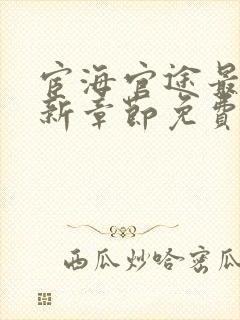 宦海官途最
新章节免费
西瓜炒哈密瓜